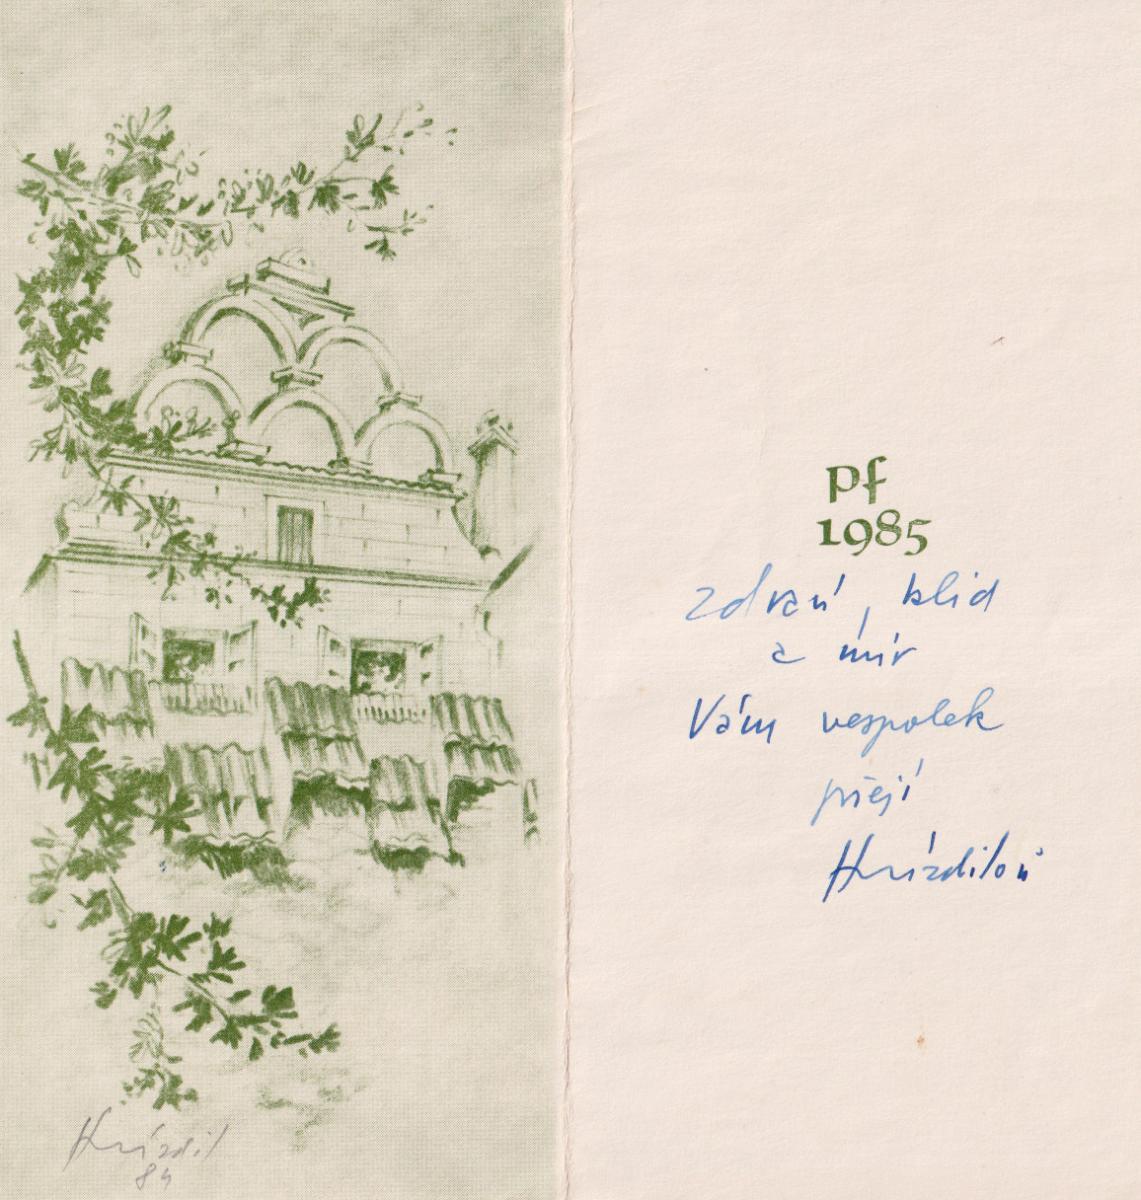 pf
1985
zdraví, klid
a mír
Vám vespolek
přejí
Hrázdilovi
Hrázdil
84